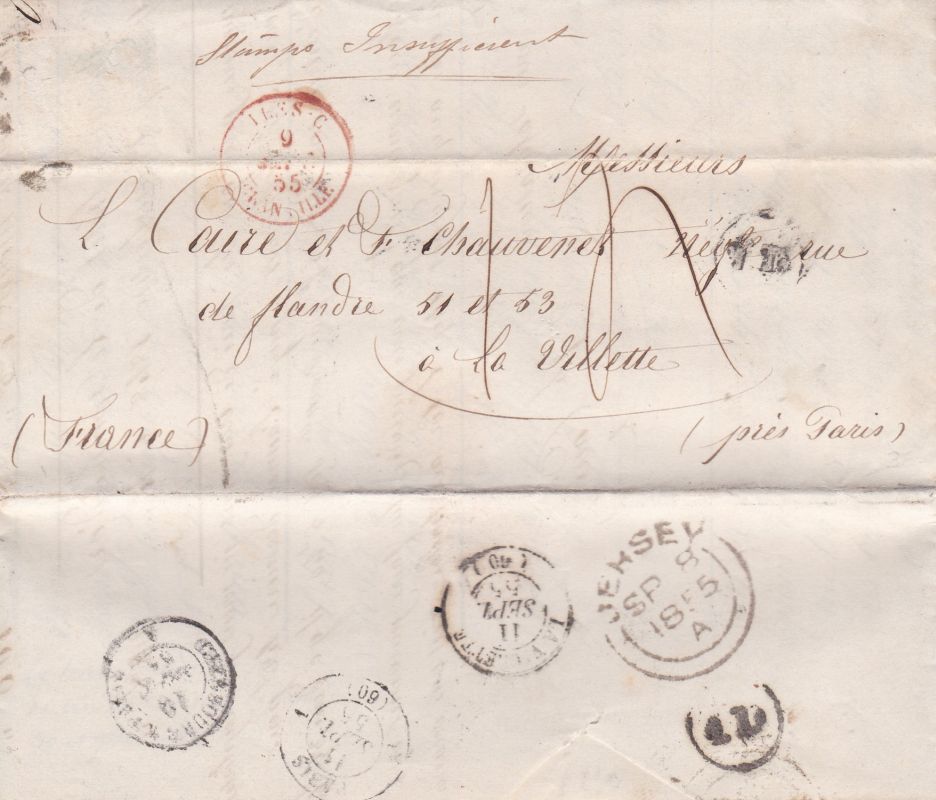 Stamps Insufficient
ILES-C.
9
SEPT.
55
GRANVILLE
Messieurs
L Caire et F Chauvenet negts rue
de flandre 51 et 53
à La Villette
(France)
(près Paris)
JERSEY
SP 8
1855
A
LA VILLETTE
11
SEPT.
55
(60)
PARIS
11
SEPT
55
(60)
10
1D